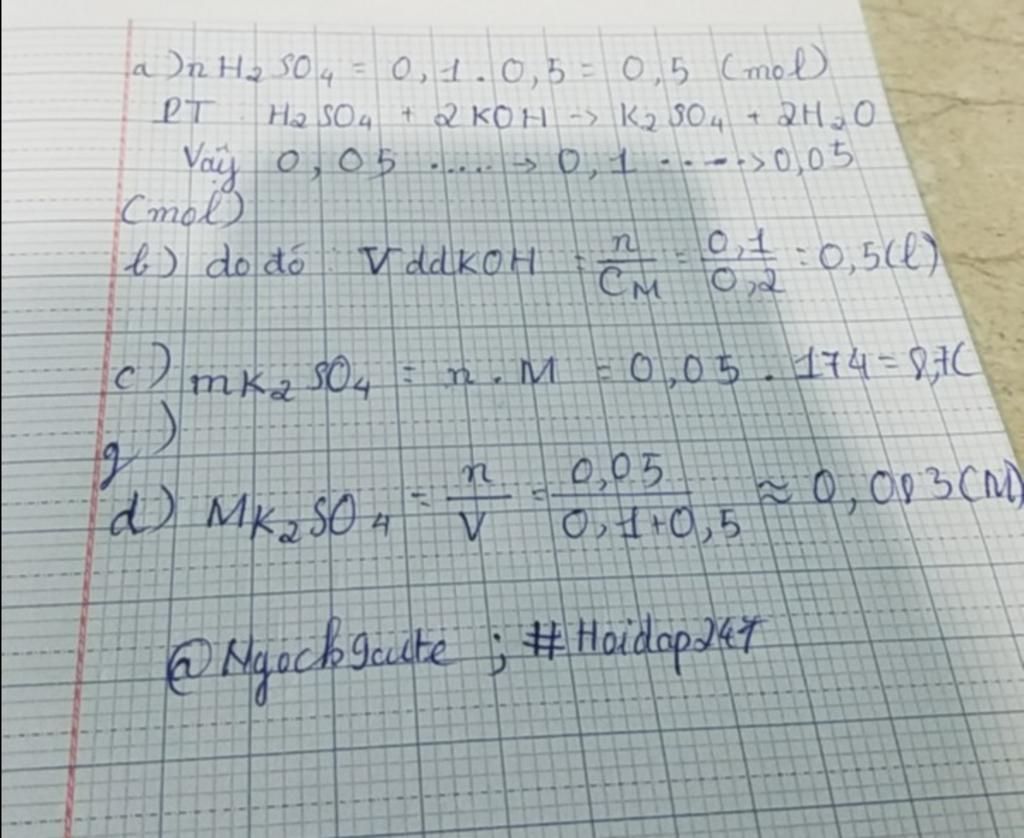 a) nH₂SO₄ = 0,1.0,5 = 0,5 (mol)
PT H₂SO₄ + 2KOH -> K₂SO₄ + 2H₂O
Vaỹ 0,05 ....-> 0,1 ----> 0,05
(mol)
b) do đó : VddKOH = n/CM = 0,1/0,2 = 0,5(l)
c) mK₂SO₄ = n.M = 0,05.174 = 8,7(
g)
d) MK₂SO₄ = n/V = 0,05/0,1+0,5 ≈ 0,083(M)
; #Hoidap247